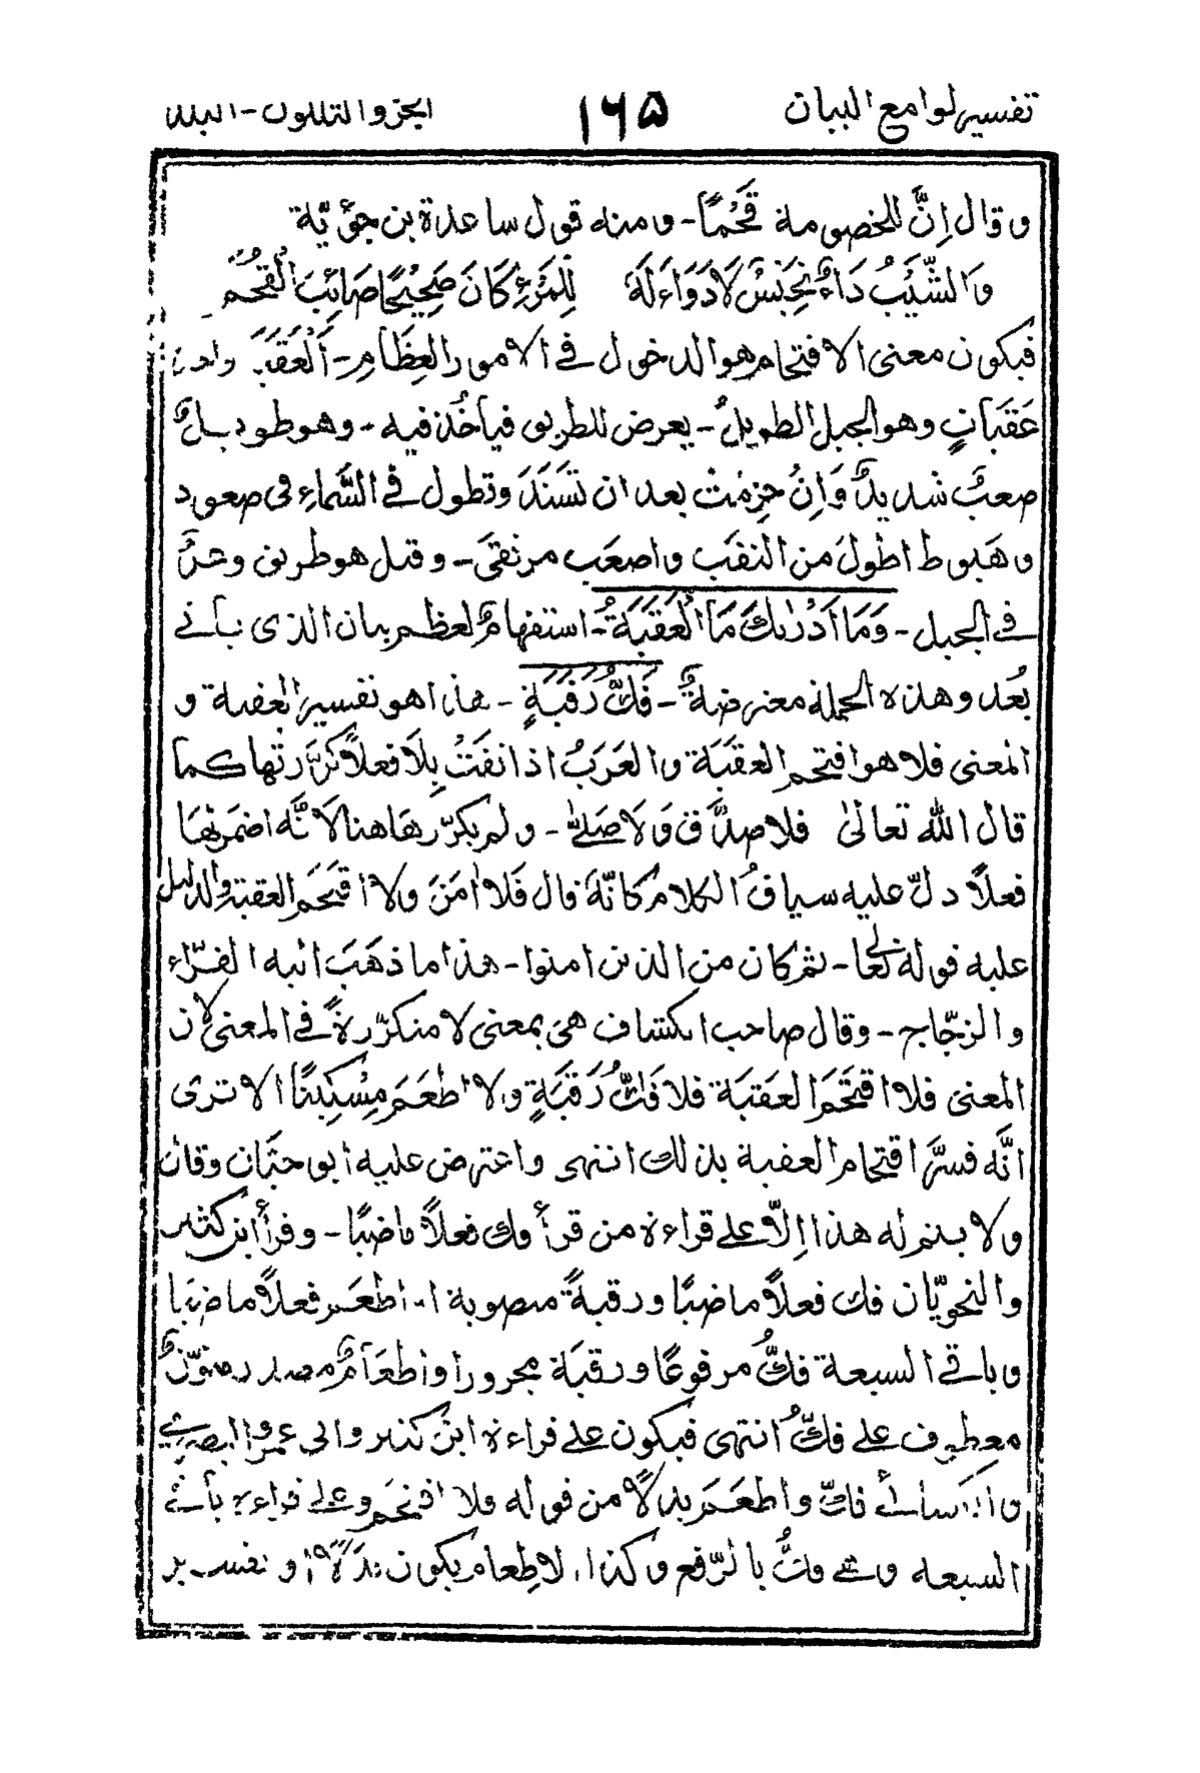 تفسير لوامع البيان ١٦٥ الجزء الثلثون - البلد
و قال اِنَّ للخصومة قُحْمًا - ومنه قول ساعدة بن جؤيّة
وَالشَّيْبُ دَاءٌ نَجِسٌ لَا دَوَاءَ لَهٗ لِلْمَرْءِ كَانَ صَحِيْحًا صَائِبَ الْقُحَمِ
فيكون معنى الاقتحام هو الدخول فى الامور العِظَامِ - اَلْعَقَبَةَ واحدة
عَقَبَاتٍ وهو الجبل الطويلُ - يعرض للطريق فيأخُذ فيه - وهو طويلٌ
صعبٌ شديدٌ وَاِنْ خرمتْ بعد ان تَسَنَدَ وتطول فى السَّمَاءِ فى صعود
وهَبوط اطْولَ من النقَب واصعَب مرتقىً - وقيل هو طريق وعرٌ
فى الجبل - وَمَا اَدْرٰىكَ مَا الْعَقَبَةُ - استفهامٌ لعظم بيان الذى يأتى
بُعد وهذه الجملة معترضةٌ - فَكُّ رَقَبَةٍ - هذا هو تفسير العقبة و
المعنى فلا هو اقتحم العقَبَة والعَرَبُ اذا نفَتْ بِلَا فعلاً كرَّرتها كما
قال الله تعالىٰ فلا صدَّق وَلَا صَلّٰى - ولم يكرّرها هنا لاَنَّه اضمرتها
فعلاً دلّ عليه سياقُ الكلام كانَّهٗ قال فَلا اٰمَنَ ولا اقتَحَم العقبة والدليل
عليه قوله تعالى - ثم كان من الذين امنوا - هذا ما ذهَبَ اليه الفرّاء
والزجّاج - وقال صاحب الكشاف هى بمعنى لا متكرّرةٌ فى المعنى لان
المعنى فلا اقتَحَمَ العقَبَة فلا فَكّ رَقَبَةٍ ولا اطْعَمَ مِسْكِينًا الا ترى
انَّه فسرَّ اقتحام العقبة بذلك انتهى واعترض عليه ابو حيَّان وقال
ولا يتم له هذا اِلاّ على قراءة من قرأ فك فعلاً ماضيًا - وقرأ ابن كثير
والنحويّان فك فعلاً ماضيًا ورقبةً منصوبة او اطعَم فعلاً ماضيًا
وباقى السبعة فكُّ مرفوعًا ورقبَة مجرورا واطعَامٌ مصدر منوّنٌ
معطوف على فكُّ انتهى فيكون على قراءة ابن كثير وابى عمرو البصرى
والكسائى فكّ واطعَم بدلًا من قوله فلا اقتحم وعلى قراءة باقى
السبعه فكُّ بالرّفع وكذا الاطعام يكون بدلًا او تفسير